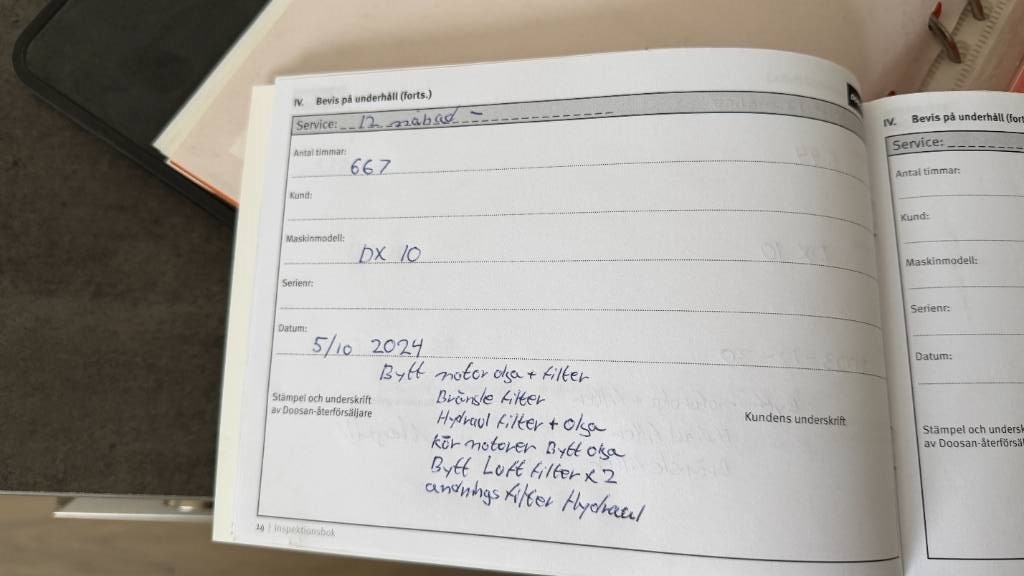 IV. Bevis på underhåll (forts.)
Service: 12 månad -
Antal timmar:
667
Kund:
Maskinmodell:
DX 10
Serienr:
Datum:
5/10 2024
Bytt motor olja + filter
Bränsle filter
Hydraul filter + olja
kör motorer Bytt olja
Bytt Luft filter x 2
andnings filter Hydraul
Stämpel och underskrift
av Doosan-återförsäljare
Kundens underskrift
24 | Inspektionsbok
IV. Bevis på underhåll (fort
Service:
Antal timmar:
Kund:
Maskinmodell:
Serienr:
Datum:
Stämpel och undersk
av Doosan-återförsäl